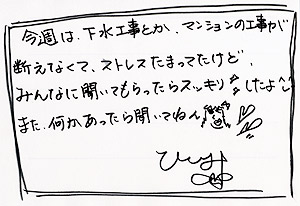 今週は、下水工事とか、マンションの工事が
断えなくて、ストレスたまってたけど、
みんなに聞いてもらったらスッキリしたよ^^
また、何かあったら聞いてねん